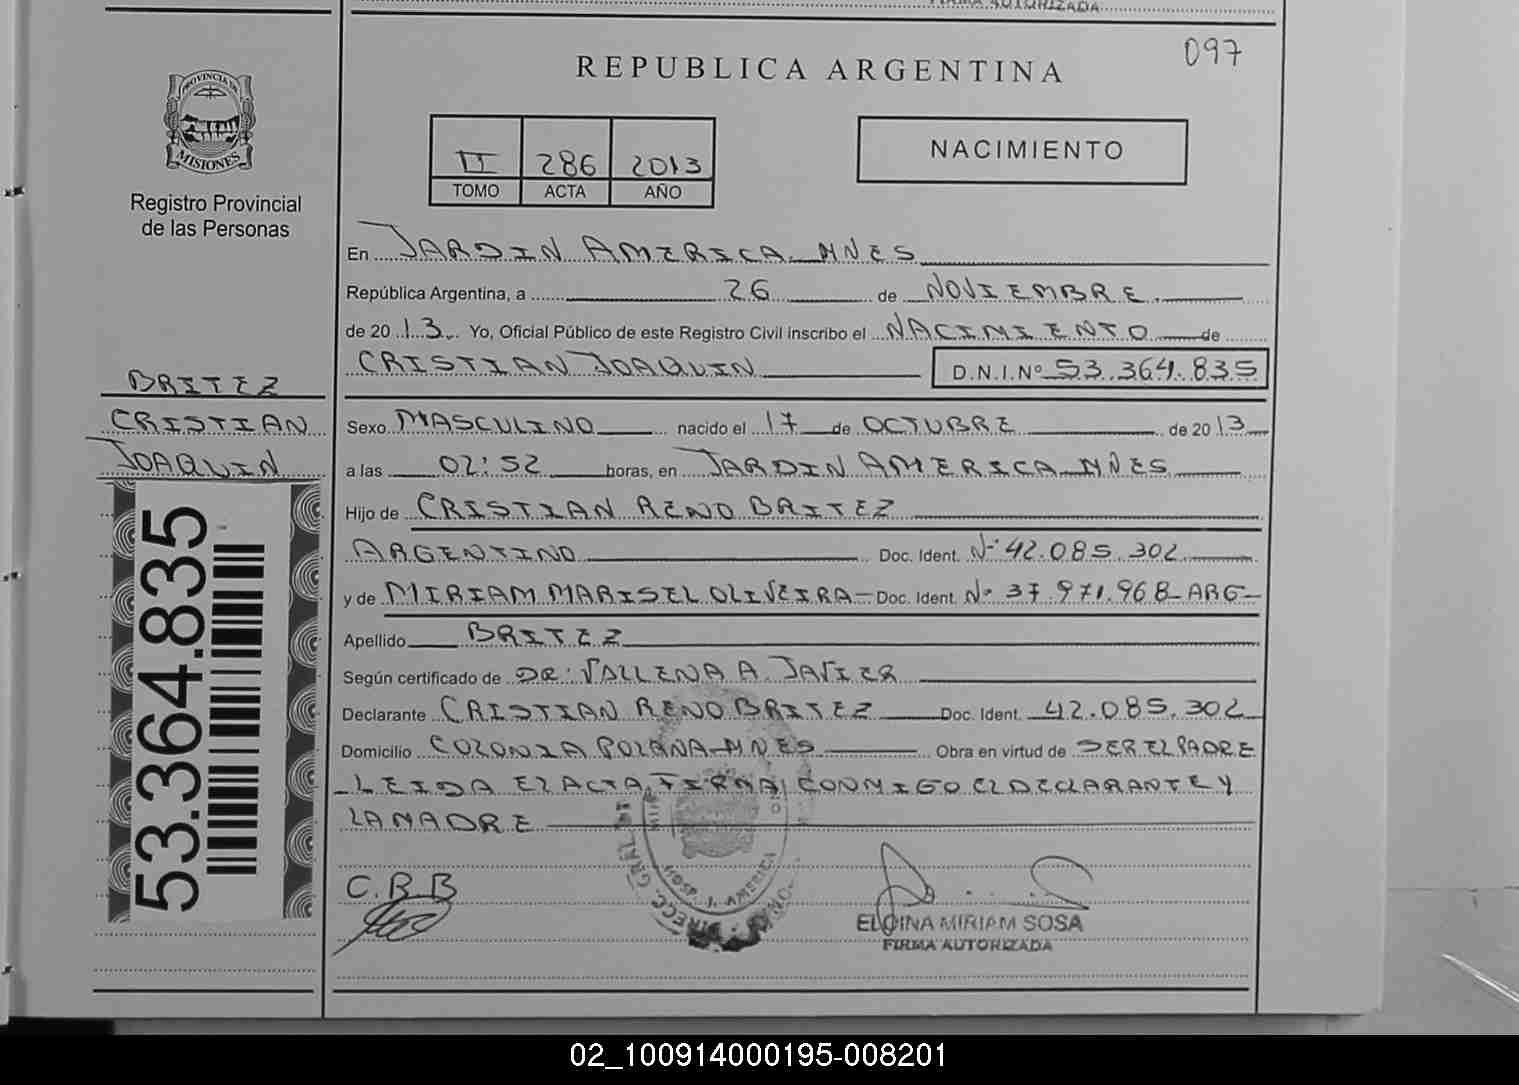 FIRMA AUTORIZADA
097
REPUBLICA ARGENTINA
PROVINCIA DE
MISIONES
Registro Provincial
de las Personas
II 286 2013
TOMO ACTA AÑO
NACIMIENTO
En JARDIN AMERICA MNES
República Argentina, a 26 de NOVIEMBRE
de 2013 Yo, Oficial Público de este Registro Civil inscribo el NACIMIENTO de
CRISTIAN JOAQUIN D.N.I.Nº 53.364.835
BRITEZ
CRISTIAN
JOAQUIN
53.364.835
Sexo MASCULINO nacido el 17 de OCTUBRE de 2013
a las 02:52 horas, en JARDIN AMERICA MNES
Hijo de CRISTIAN RENO BRITEZ
ARGENTINO Doc. Ident. Nº 42.085.302
y de MIRIAM MARISEL OLIVEIRA- Doc. Ident. Nº 37.971.968-ARG-
Apellido BRITEZ
Según certificado de DR: VALLENA A. JAVIER
Declarante CRISTIAN RENO BRITEZ Doc. Ident. 42.085.302
Domicilio COLONIA POLANA-MNES Obra en virtud de SER EL PADRE
-LEIDA EL ACTA, FIRMA CONMIGO EL DECLARANTE Y
LA MADRE
C.B.B
HOSP. J. AMERICA
DIRECC. GRAL.
ELOINA MIRIAM SOSA
FIRMA AUTORIZADA
02_100914000195-008201